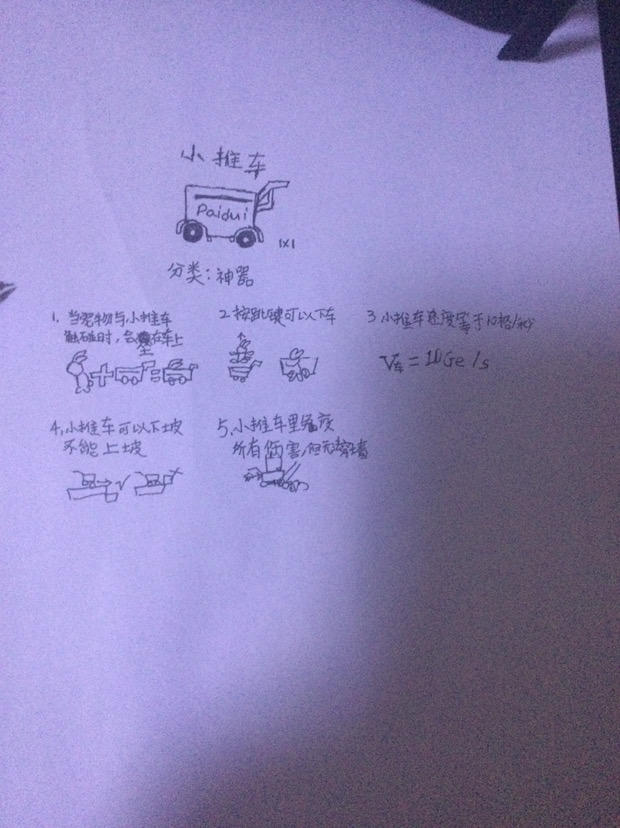 小推车
Paidui
1x1
分类:神器
1. 当宠物与小推车
触碰时,会坐在车上
2 按跳键可以下车
3 小推车速度等于10格/秒
V车=10Ge/s
4,小推车可以下坡
不能上坡
5,小推车里免疫
所有伤害,但无法穿墙